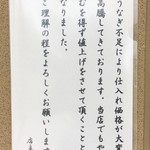 うなぎ不足により仕入れ価格が大変
高騰してきております。当店でもや
むを得ず値上げをさせて頂くこと
なりました。
ご理解の程をよろしくお願いします
店主